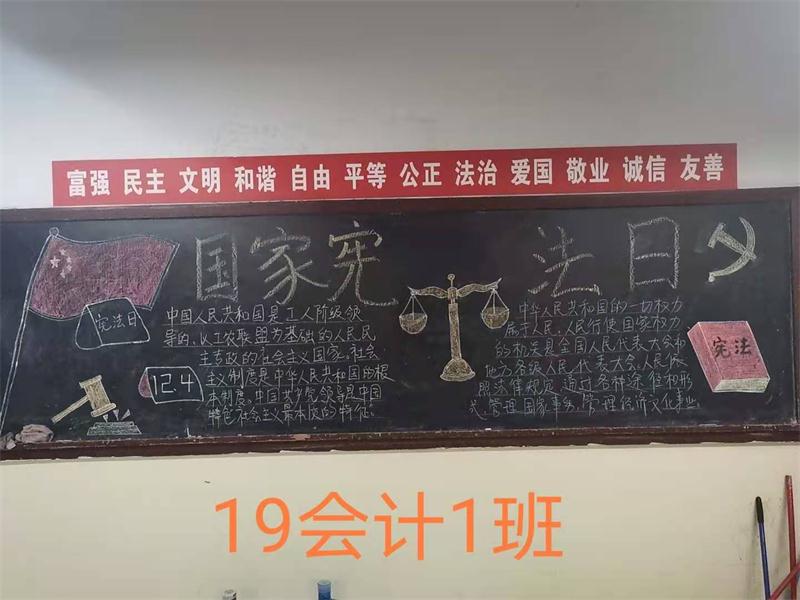 富强 民主 文明 和谐 自由 平等 公正 法治 爱国 敬业 诚信 友善
国家宪法日
宪法日
124
中国人民共和国是工人阶级领
导的,以工农联盟为基础的人民民
主专政的社会主义国家。社会
主义制度是中华人民共和国的根
本制度。中国共产党领导是中国
特色社会主义最本质的特征。
中华人民共和国的一切权力
属于人民。人民行使国家权力
的机关是全国人民代表大会和
地方各级人民代表大会。人民依
照法律规定,通过各种途径和形
式,管理国家事务,管理经济文化事业
宪法
19会计1班